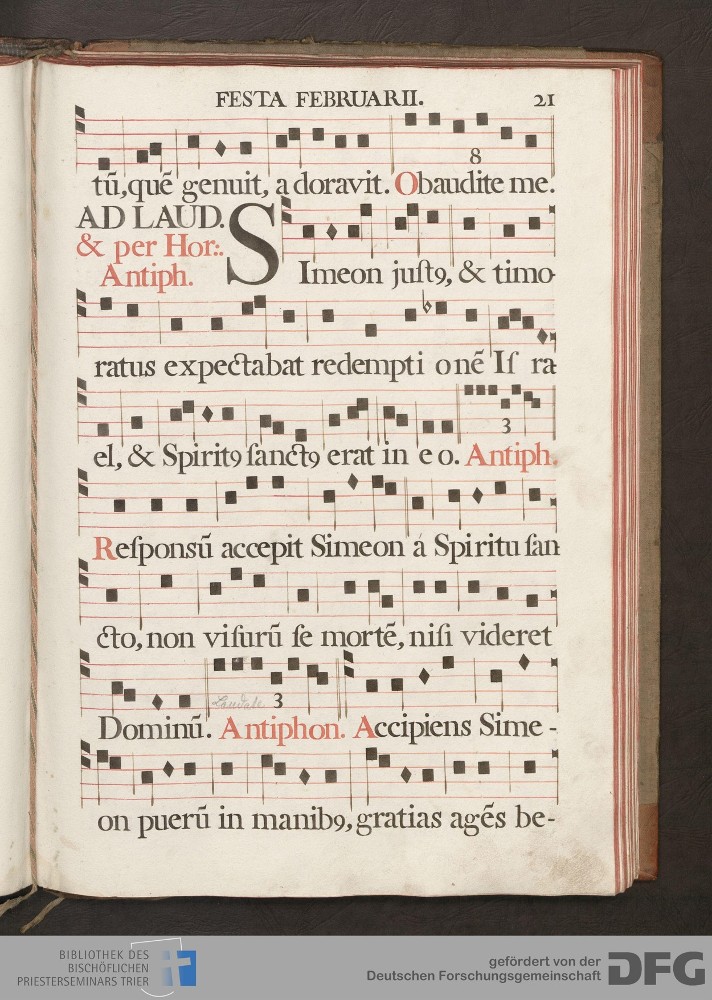 FESTA FEBRUARII. 21
8
tũ, quẽ genuit, adoravit. Obaudite me.
AD LAUD.
& per Hor:.
Antiph.
SImeon juſtꝰ, & timo-
ratus expectabat redempti onẽ Iſ ra-
3
el, & Spiritꝰ ſanctꝰ erat in eo. Antiph.
Reſponsũ accepit Simeon á Spiritu ſan
cto, non viſurũ ſe mortẽ, niſi videret
Laudate 3
Dominũ. Antiphon. Accipiens Sime-
on puerũ in manibꝰ, gratias agẽs be-
BIBLIOTHEK DES
BISCHÖFLICHEN
PRIESTERSEMINARS TRIER
gefördert von der
Deutschen Forschungsgemeinschaft
DFG